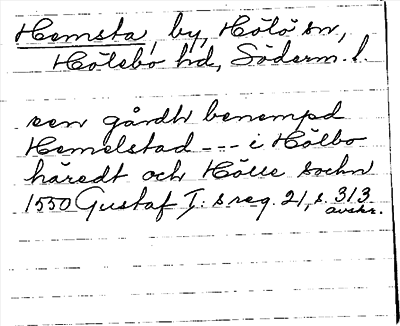 Hemsta, by, Hölö sn,
Hölebo hd, Söderm. l.
een gårdh benempd
Hemelstad --- i Hölbo
häredt och Hölle sochn
1550 Gustaf I: s reg. 21, s. 313.
avskr.